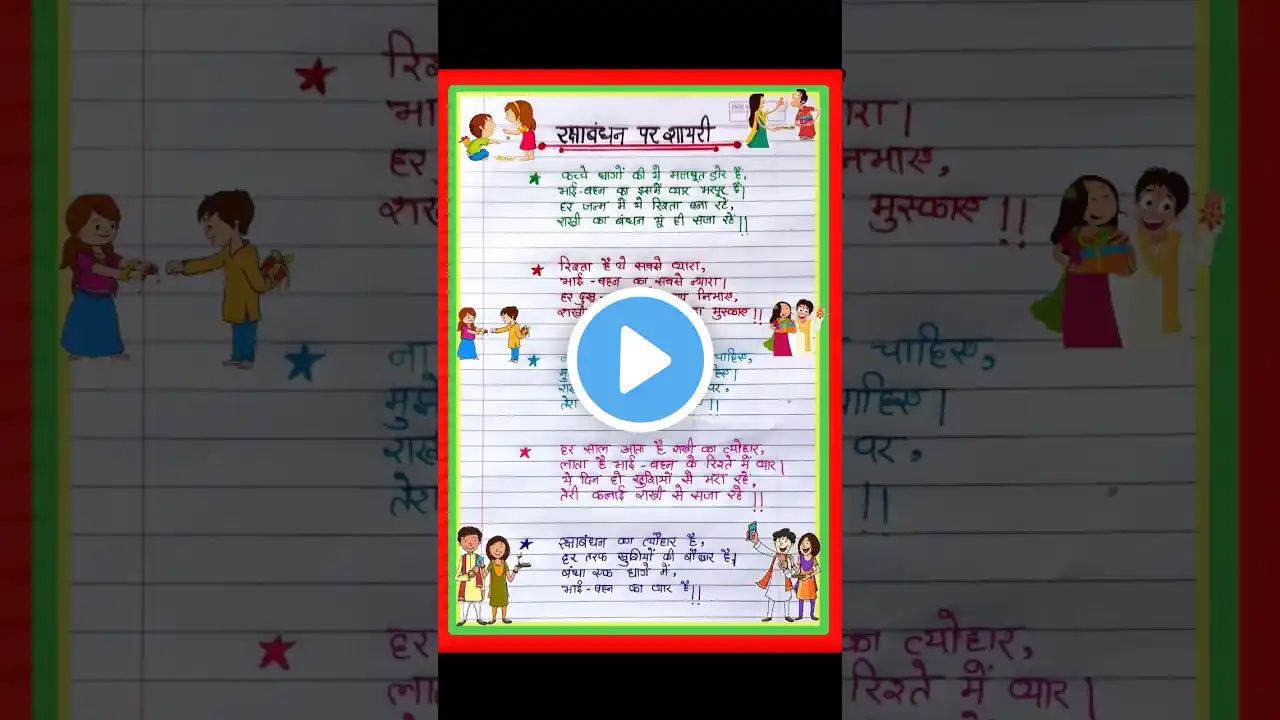 रक्षाबंधन पर शायरी
कच्चे धागों की ये मजबूत डोर है,
भाई-बहन का इसमें प्यार भरपूर है।
हर जन्म में ये रिश्ता बना रहे,
राखी का बंधन यूं ही सजा रहे!!
रिश्ता है ये सबसे प्यारा,
भाई-बहन का सबसे न्यारा।
हर दुख- निभाए,
राखी मुस्काए!!
चाहिए,
पर,
तेरा !!
हर साल आता है राखी का त्योहार,
लाता है भाई-बहन के रिश्ते में प्यार।
ये दिन हो खुशियों से भरा रहे,
तेरी कलाई राखी से सजा रहे!!
रक्षाबंधन का त्यौहार है,
हर तरफ खुशियों की बौछार है।
बंधा एक धागे में,
भाई-बहन का प्यार है!!